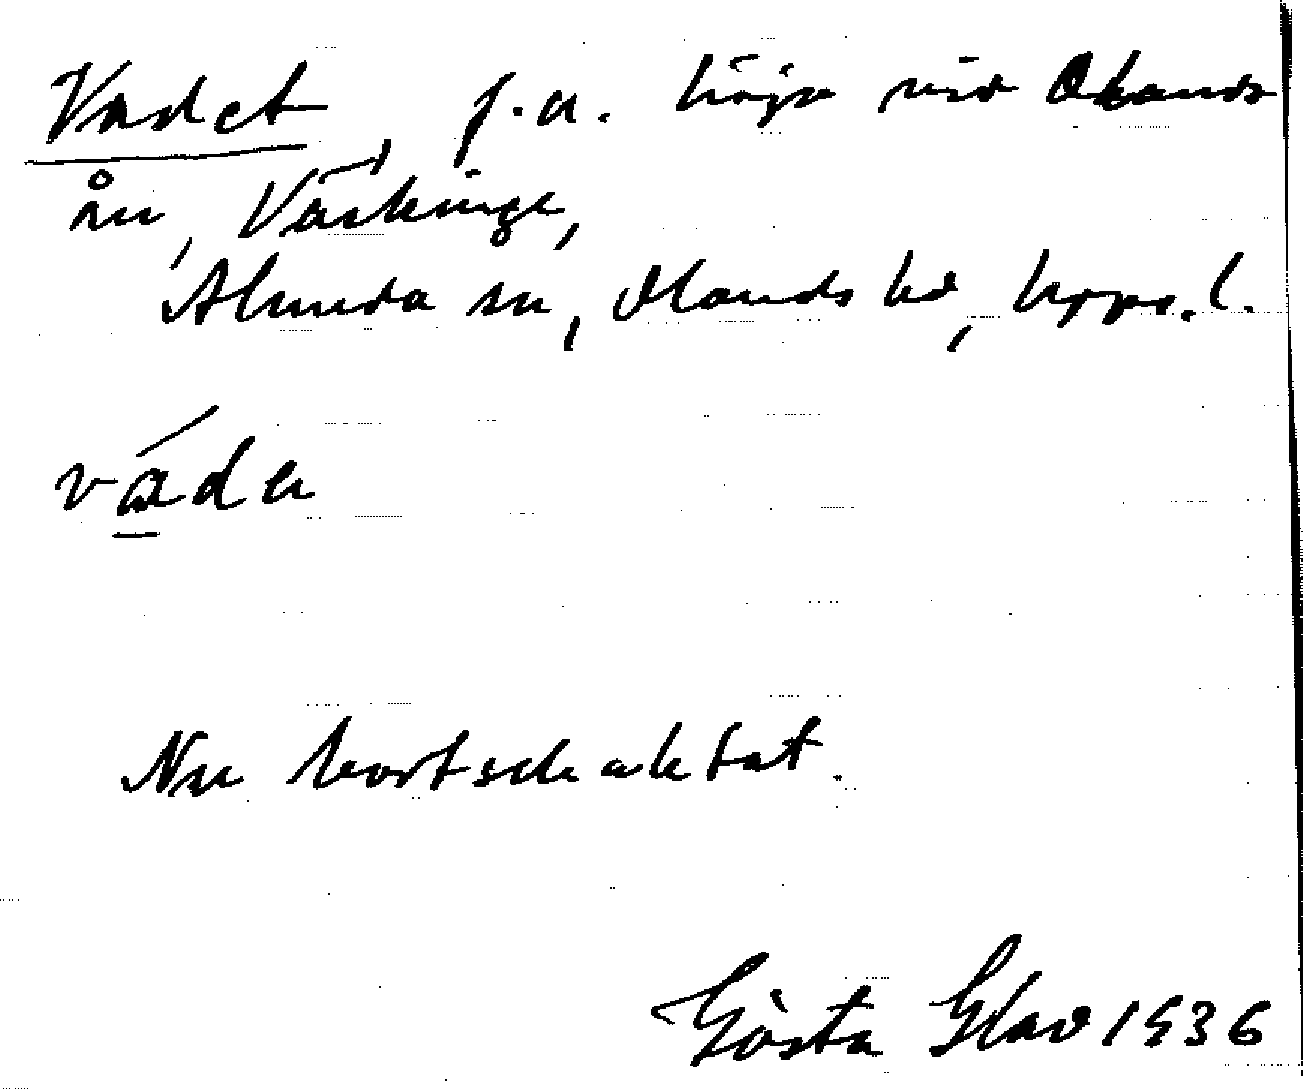 Vadet, f.a. höja vid Olands
ån, Väskinge,
Almunda sn, Olands hd, Upps. l.
váda
Nu bortschaktat.
Gösta Glav 1936